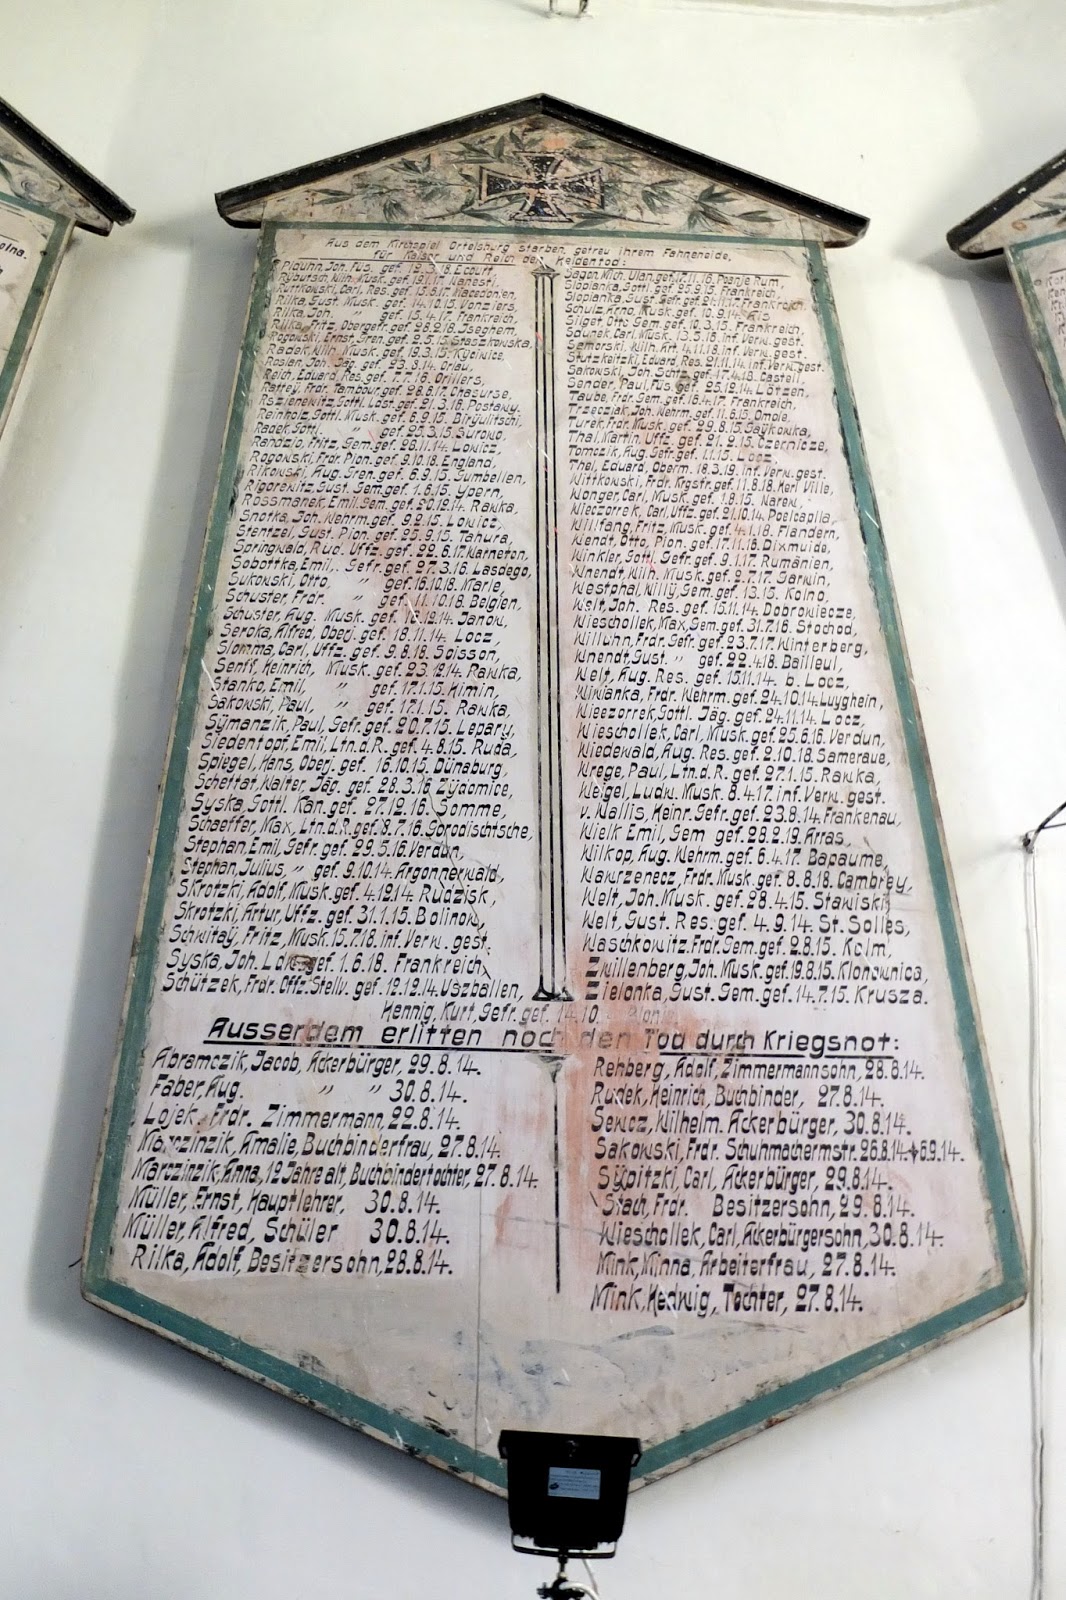 Aus dem Kirchspiel Ortelsburg starben, getreu ihrem Fahneneide,
für Kaiser und Reich den Heldentod:
Plauhn, Joh. Füs. gef.
Rybutsch, Wilh. Musk. gef.
Carl, Res. gef. Macedonien,
Rilka, Gust. Musk. gef. 14.10.15. Vonziers,
Rilka, Joh. " gef. 15.4.17. Frankreich,
Rilka, Fritz, Obergefr. gef. 28.2.18. Iseghem,
Rogowski, Ernst, Gren. gef. 2.5.15. Staszkowska,
Radek, Wilh. Musk. gef. 19.3.15. Kyciwice,
Roslan, Joh. Jäg. gef. 23.8.14. Orlau,
Reich, Eduard, Res. gef. 7.7.16. Oriviers,
Rattey, Frdr. Tambour, gef. 28.8.17. Chasurse,
Rszienewitz, Gottl. Ldst. gef. 21.3.16. Postawy,
Reinholz, Gottl. Musk. gef. 6.9.15. Birgulitschi,
Radek, Gottl. " gef. 25.3.15. Surowo,
Randzio, Fritz, Gem. gef. 28.11.14. Lowicz,
Rogowski, Frdr. Pion. gef. 9.10.18. England,
Rikowski, Aug. Gren. gef. 6.9.15. Gumbellen,
Rigorewitz, Gust. Gem. gef. 1.6.15. Ypern,
Rossmanek, Emil, Gem. gef. 20.12.14. Rawka,
Snotka, Joh. Wehrm. gef. 9.2.15. Lowicz,
Stentzel, Gust. Pion. gef. 25.9.15. Tahura,
Springwald, Rud. Uffz. gef. 22.6.17. Warneton,
Sobottka, Emil, Gefr. gef. 27.3.16. Lasdego,
Sukowski, Otto, " gef. 16.10.18. Marle,
Schuster, Frdr. " gef. 11.10.18. Belgien,
Schuster, Aug. Musk. gef. 16.12.14. Janow,
Seroka, Alfred, Oberj. gef. 18.11.14. Locz,
Slomma, Carl, Uffz. gef. 9.8.18. Soisson,
Senff, Heinrich, Musk. gef. 23.12.14. Rawka,
Stanko, Emil, " gef. 17.1.15. Kimin,
Sakowski, Paul, " gef. 17.1.15. Rawka,
Symanzik, Paul, Gefr. gef. 20.7.15. Lepary,
Siedentopf, Emil, Ltn.d.R. gef. 4.8.15. Ruda,
Spiegel, Hans, Oberj. gef. 16.10.15. Dünaburg,
Scheffat, Walter, Jäg. gef. 28.3.16. Zydomice,
Syska, Gottl. Kan. gef. 27.12.16. Somme,
Schaeffer, Max, Ltn.d.R. gef. 8.7.16. Gorodischtsche,
Stephan, Emil, Gefr. gef. 29.5.16. Verdun,
Stephan, Julius, " gef. 9.10.14. Argonnerwald,
Skrotzki, Adolf, Musk. gef. 4.12.14. Rudzisk,
Skrotzki, Artur, Uffz. gef. 31.1.15. Bolinow,
Schwitay, Fritz, Musk. 15.7.18. inf. Verw. gest.
Syska, Joh. gef. 1.6.18. Frankreich,
Schützek, Frdr. Offz. Stellv. gef. 12.12.14. Uszballen,
Sagon, Mich. Ulan, gef. 17.11.16. Poanje Rum,
Slopianka, Gottl. gef. 25.9.15. Frankreich,
Slopianka, Gust. Gefr. gef. Frankreich,
Schulz, Arno, Musk. gef. 10.9.14.
Silget, Otto, Gem. gef. 10.3.15. Frankreich,
Sdunek, Carl, Musk. 13.5.16. inf. Verw. gest.
Semorski, Wilh. Art. 4.11.18. inf. Verw. gest.
Stutzkeitzki, Eduard, Res. 21.11.14. inf. Verw. gest.
Sakowski, Joh. Schtz. gef. Castell,
Sender, Paul, Füs. gef. 25.12.14. Lötzen,
Taube, Frdr. Gem. gef. 16.4.17. Frankreich,
Trzecziak, Joh. Wehrm. gef. 11.6.15. Omole,
Turek, Frdr. Musk. gef. 29.8.15. Saykowka,
Thal, Martin, Uffz. gef. 21.2.15. Czernicze,
Tomczik, Aug. Gefr. gef. 1.1.15. Locz,
Thal, Eduard, Oberm. 18.3.19. inf. Verw. gest.
Wittkowski, Frdr. Krgsfr. gef. 11.8.18. Kerl Ville,
Wonger, Carl, Musk. gef. 1.8.15. Narew,
Wieczorrek, Carl, Uffz. gef. 21.10.14. Poelcaplla,
Willfang, Fritz, Musk. gef. 4.1.18. Flandern,
Wendt, Otto, Pion. gef. 17.11.18. Dixmuide,
Winkler, Gottl. Gefr. gef. 9.1.17. Rumänien,
Wnendt, Wilh. Musk. gef. 2.7.17. Garwin,
Westphal, Willy, Gem. gef. 13.15. Kolno,
Welt, Joh. Res. gef. 15.11.14. Dobrowiecze,
Wieschollek, Max, Gem. gef. 31.7.16. Stochod,
Willuhn, Frdr. Gefr. gef. 23.7.17. Winterberg,
Wnendt, Gust. " gef. 22.4.18. Bailleul,
Welt, Aug. Res. gef. 15.11.14. b. Locz,
Wiwianka, Frdr. Wehrm. gef. 24.10.14. Luyghein,
Wieezorrek, Gottl. Jäg. gef. 24.11.14. Locz,
Wieschollek, Carl, Musk. gef. 25.6.16. Verdun,
Wiedewald, Aug. Res. gef. 2.10.18. Sameraue,
Wrege, Paul, Ltn.d.R. gef. 27.1.15. Rawka,
Weigel, Ludw. Musk. 8.4.17. inf. Verw. gest.
v. Wallis, Heinr. Gefr. gef. 23.8.14. Frankenau,
Wielk Emil, Gem gef. 28.2.19. Arras,
Wilkop, Aug. Wehrm. gef. 6.4.17. Bapaume,
Wawrzenecz, Frdr. Musk. gef. 8.8.18. Cambrey,
Welt, Joh. Musk. gef. 28.4.15. Stawiski,
Welt, Gust. Res. gef. 4.9.14. St. Solles,
Waschkowitz, Frdr. Gem. gef. 2.8.15. Kolm,
Zwillenberg, Joh. Musk. gef. 19.8.15. Klonownica,
Zielonka, Gust. Gem. gef. 14.7.15. Krusza.
Hennig, Kurt, Gefr. gef. 14.10.
Ausserdem erlitten noch den Tod durch Kriegsnot:
Abramczik, Jacob, Ackerbürger, 29.8.14.
Faber, Aug. " " 30.8.14.
Lojek, Frdr. Zimmermann, 22.8.14.
Marczinzik, Amalie, Buchbinderfrau, 27.8.14.
Marczinzik, Anna, 12 Jahre alt, Buchbindertochter, 27.8.14.
Müller, Ernst, Hauptlehrer, 30.8.14.
Müller, Alfred, Schüler 30.8.14.
Rilka, Adolf, Besitzersohn, 28.8.14.
Rehberg, Adolf, Zimmermannsohn, 28.8.14.
Rudek, Heinrich, Buchbinder, 27.8.14.
Sewcz, Wilhelm, Ackerbürger, 30.8.14.
Sakowski, Frdr. Schuhmachermstr. 26.8.14. + 6.9.14.
Sypitzki, Carl, Ackerbürger, 29.8.14.
Stach, Frdr. Besitzersohn, 29.8.14.
Wieschollek, Carl, Ackerbürgersohn, 30.8.14.
Mink, Minna, Arbeiterfrau, 27.8.14.
Mink, Hedwig, Tochter, 27.8.14.